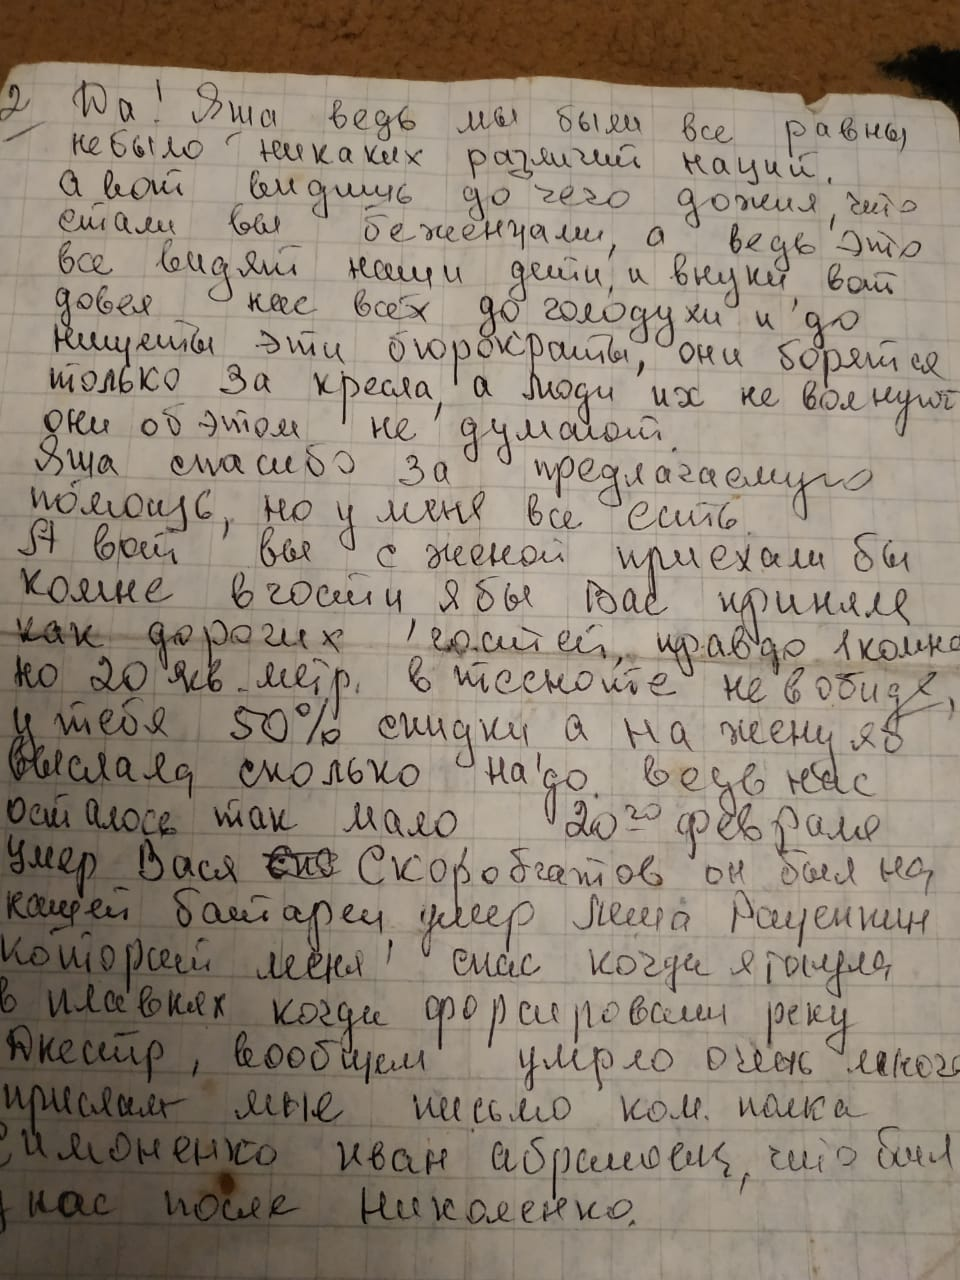 2 Да! Яша ведь мы были все равны,
небыло никаких различий наций.
а вот видишь до чего дожил, что
стали вы беженцами, а ведь это
все видят наши дети, и внуки, вот
довел нас всех до голодухи и до
нищеты эти бюрократы, они борятся
только за кресла, а люди их не волнуют
они об этом не думают.
Яша спасибо за предлагаемую
помощь, но у меня все есть.
А вот вы с женой приехали бы
комне вгости я бы Вас приняла
как дорогих гостей, правдо 1 комна
но 20 кв. метр. в тесноте не вобиде,
у тебя 50% скидки а на жену я б
выслала сколько надо. ведь нас
осталось так мало 20го февраля
умер Вася Скоробгатов он был на
нашей батареи, умер Леша
который меня спас когда я тонула
в плавнях когда форсировали реку
Днестр, вообщем умрло очень много
прислал мне письмо ком. полка
Симоненко иван абрамович, что был
у нас после Николенко.